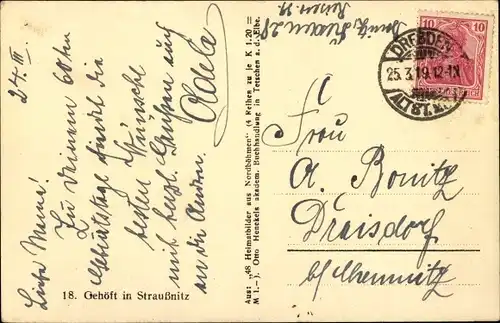 24. III.
Liebe Mama!
Zu Deinem 60ten
Geburtstage sendet die
besten Wünsche
mit herzl. Grüßen auch
an die Andern.
Adele
18. Gehöft in Straußnitz
Aus: „48 Heimatbilder aus Nordböhmen“ (4 Reihen zu je K 1.20 =
M 1.–). Otto Henckels akadem. Buchhandlung in Tetschen a. d. Elbe.
10
DRESDEN
25.3.19.12-1N
ALTST.
Frau
A. Bonitz
Draisdorf
b/Chemnitz